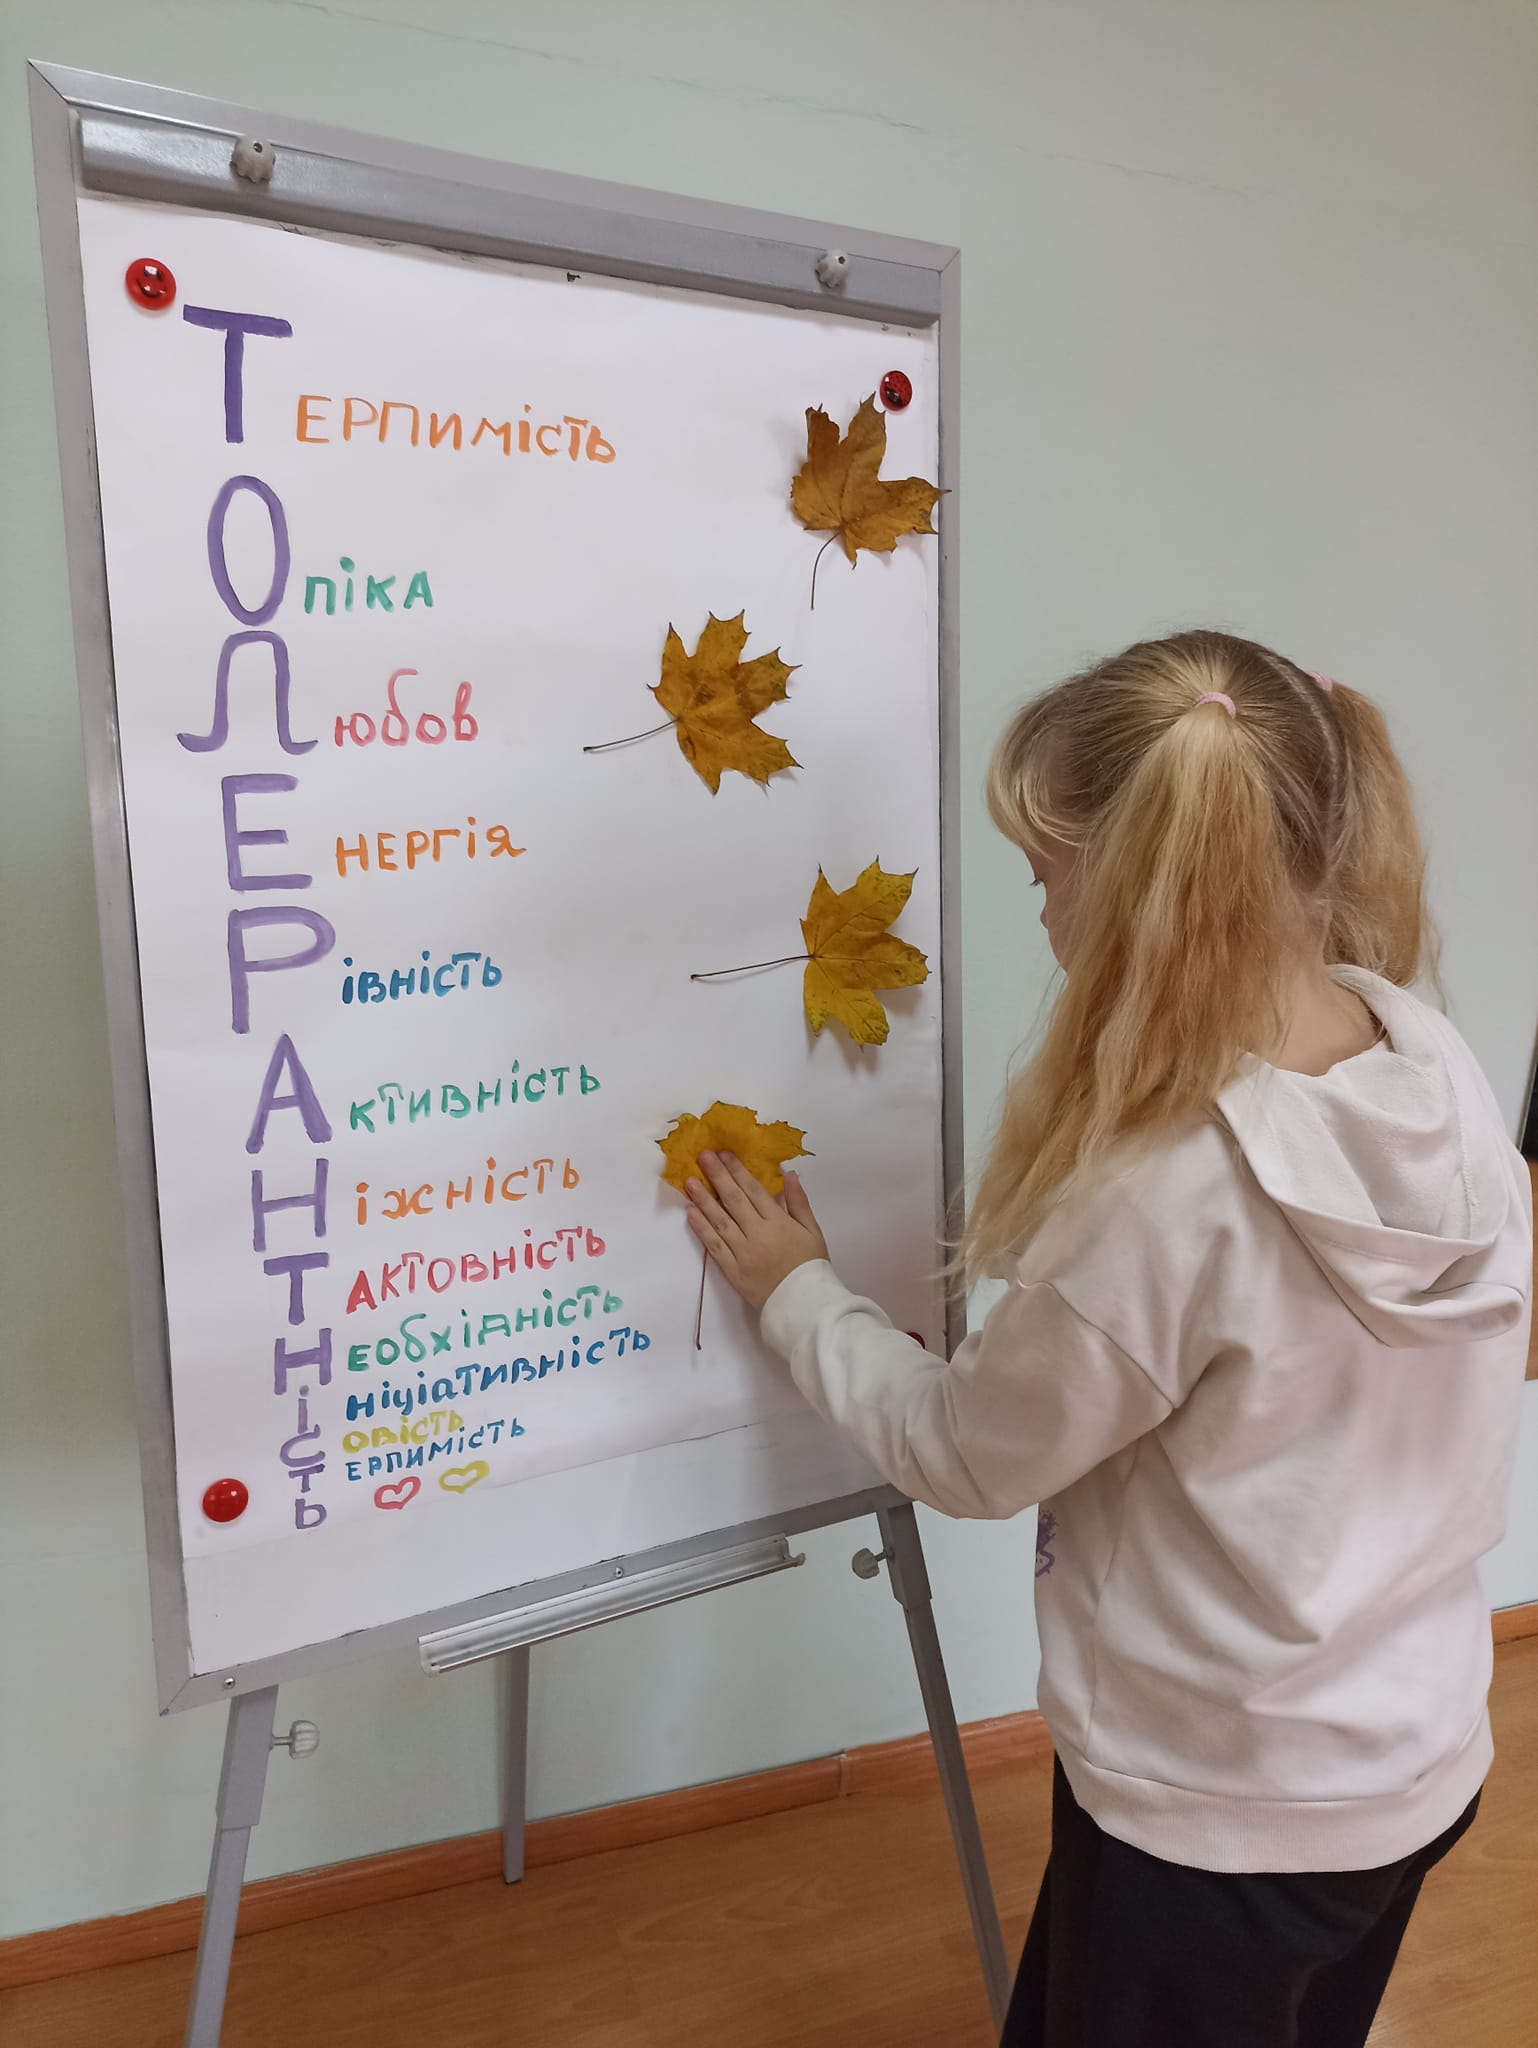 Терпимість
Опіка
Любов
Енергія
Рівність
Активність
Ніжність
Тактовність
Необхідність
Ініціативність
Совість
Терпимість
Ь